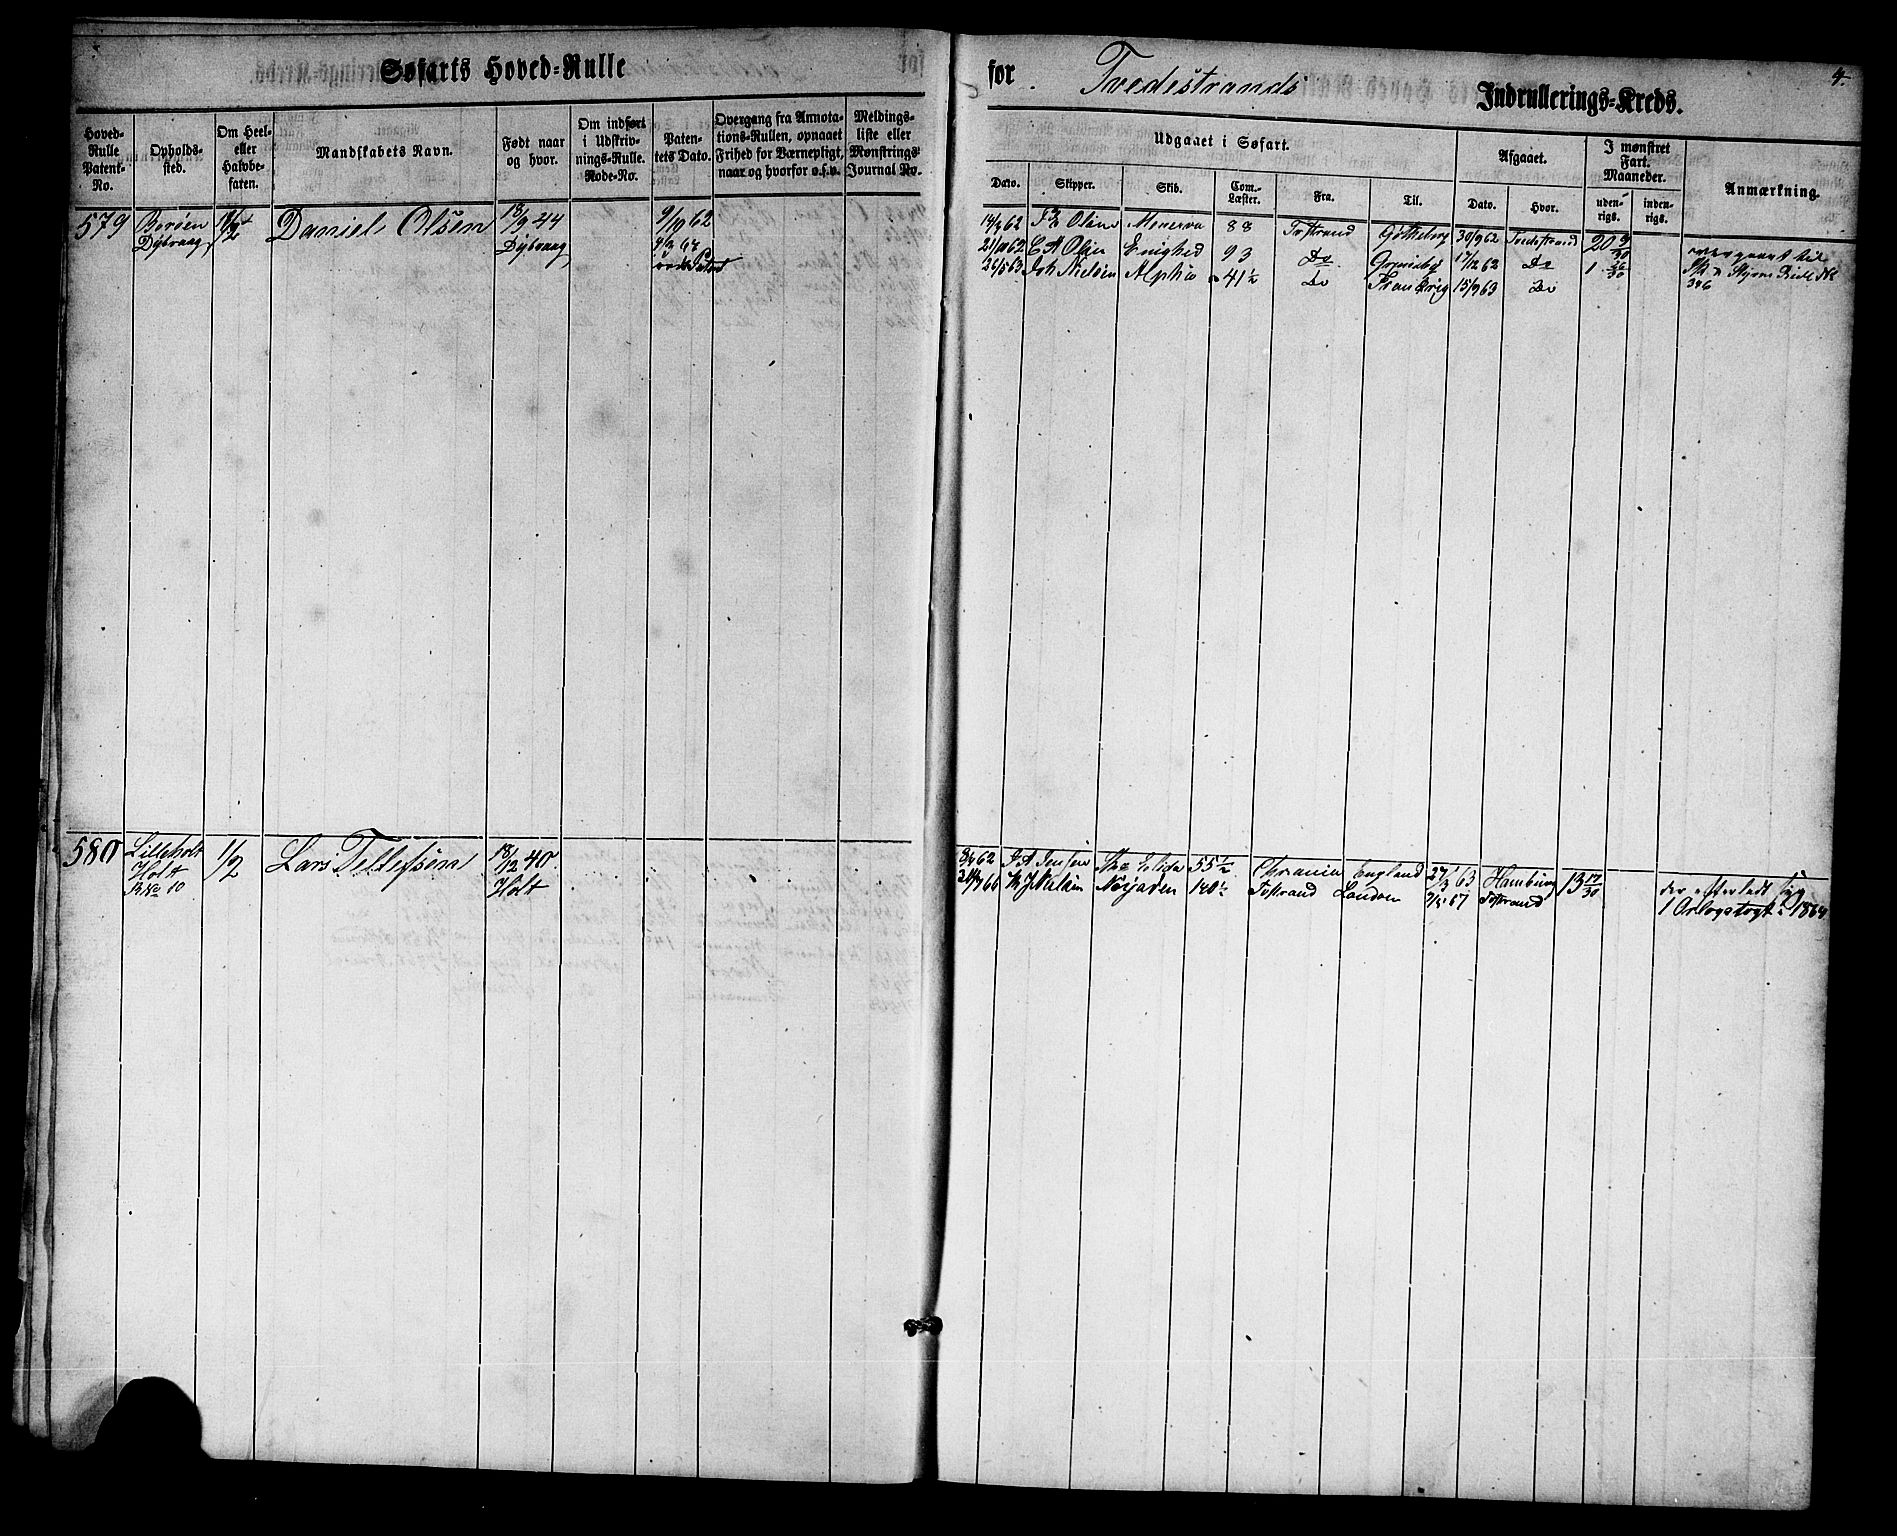 Søfarts Hoved-Rulle
for Tvedestrands Indrullerings-Kreds.
4.
Hoved-Rulle Patent-No.
Opholdssted.
Om Heel- eller Halvbefaren.
Mandskabets Navn.
Født naar og hvor.
Om indført i Udskrivnings-Rulle. Rode-No.
Patentets Dato.
Overgang fra Annotations-Rullen, opnaaet Frihed for Værnepligt, naar og hvorfor o.s.v.
Meldingsliste eller Mønstrings Journal No.
Udgaaet i Søfart.
Afgaaet.
I mønstret Fart. Maaneder.
Anmærkning.
Dato.
Skipper.
Skib.
Com.-Læster.
Fra.
Til.
Dato.
Hvor.
udenrigs.
indenrigs.
579 Borøen Dybvaag 1/2 Daniel Olsen 18/9 44 Dybvaag 9/9 62
14/3 62 Olsen Menerva 88 Tvstrand Gøtheborg 30/9 62 Tvedestrand 20 9/30
21/10 62 C A Olsen Enighed 93 Do Grimsby 17/12 62 Do 1 26/30
26/5 63 Joh Nielsen Alpha 41 1/2 Do 15/9 63 Do
overgaaet til
Styrm Rulle No
346
580 Lilleholt Holt R No 10 1/2 Lars Tellefsen 18/12 40 Holt
8/4 62 J A Jensen Elida 55 1/2 Chrania England 27/3 63 Hamburg 13 17/30
66 Nielsen Norjaren 140 1/2 Tvstrand London 67 Tvstrand
der efterladt syg
1 Orlogstogt 1864